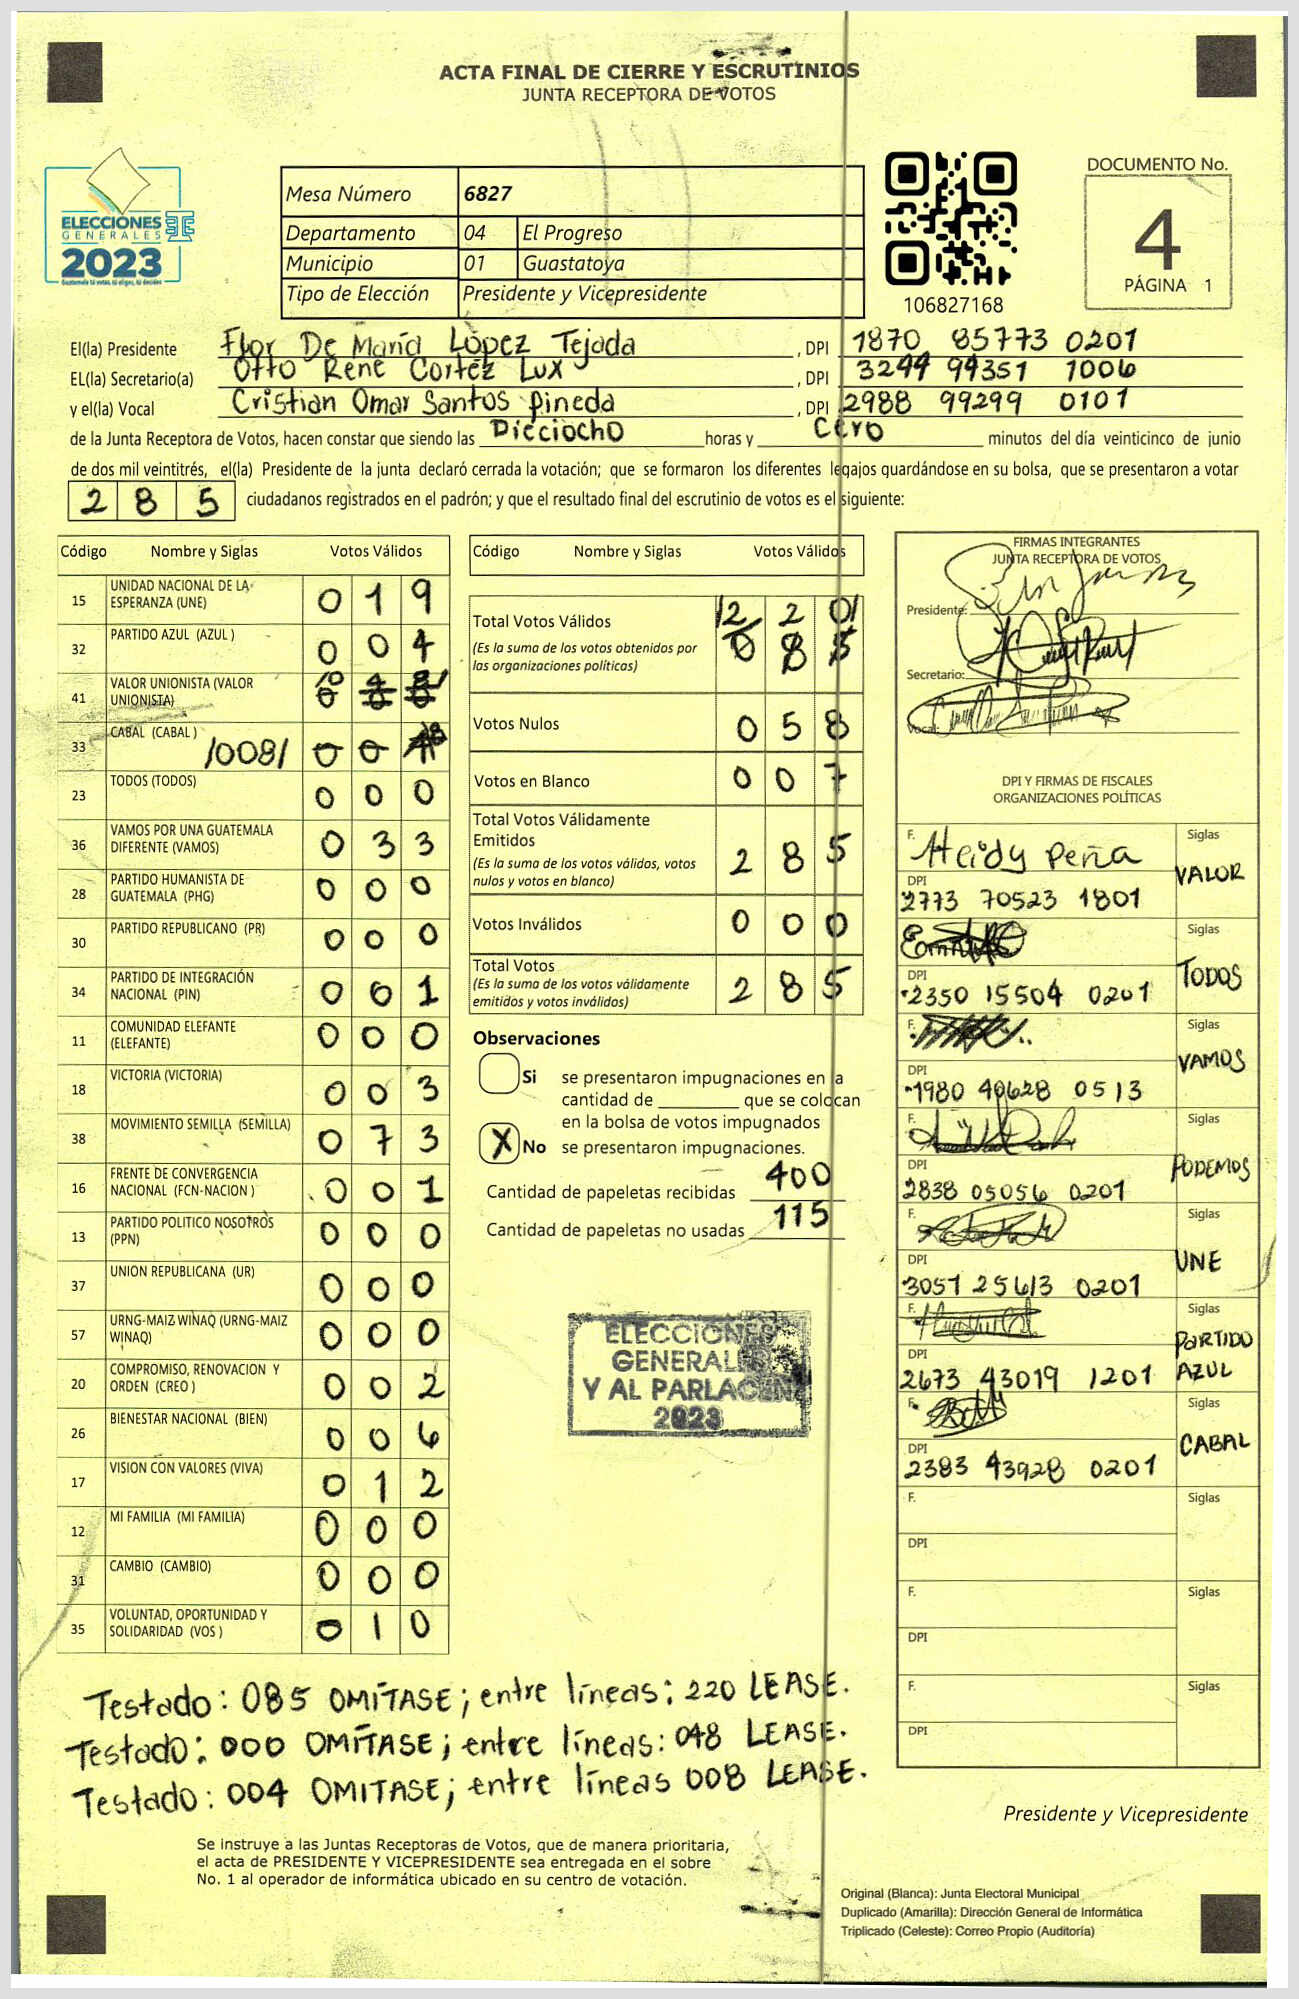 ACTA FINAL DE CIERRE Y ESCRUTINIOS
JUNTA RECEPTORA DE VOTOS
ELECCIONES
GENERALES
2023
Guatemala tú votas, tú eliges, tú decides
Mesa Número 6827
Departamento 04 El Progreso
Municipio 01 Guastatoya
Tipo de Elección Presidente y Vicepresidente
106827168
DOCUMENTO No.
4
PÁGINA 1
El(la) Presidente Flor De María López Tejada , DPI 1870 85773 0201
EL(la) Secretario(a) Otto Rene Cortéz Lux , DPI 3244 94351 1006
y el(la) Vocal Cristian Omar Santos Pineda , DPI 2988 99299 0101
de la Junta Receptora de Votos, hacen constar que siendo las Dieciocho horas y Cero minutos del día veinticinco de junio
de dos mil veintitrés, el(la) Presidente de la junta declaró cerrada la votación; que se formaron los diferentes legajos guardándose en su bolsa, que se presentaron a votar
285 ciudadanos registrados en el padrón; y que el resultado final del escrutinio de votos es el siguiente:
Código Nombre y Siglas Votos Válidos
15 UNIDAD NACIONAL DE LA ESPERANZA (UNE) 0 1 9
32 PARTIDO AZUL (AZUL ) 0 0 4
41 VALOR UNIONISTA (VALOR UNIONISTA)
33 CABAL (CABAL ) /008/
23 TODOS (TODOS) 0 0 0
36 VAMOS POR UNA GUATEMALA DIFERENTE (VAMOS) 0 3 3
28 PARTIDO HUMANISTA DE GUATEMALA (PHG) 0 0 0
30 PARTIDO REPUBLICANO (PR) 0 0 0
34 PARTIDO DE INTEGRACIÓN NACIONAL (PIN) 0 0 1
11 COMUNIDAD ELEFANTE (ELEFANTE) 0 0 0
18 VICTORIA (VICTORIA) 0 0 3
38 MOVIMIENTO SEMILLA (SEMILLA) 0 7 3
16 FRENTE DE CONVERGENCIA NACIONAL (FCN-NACION ) 0 0 1
13 PARTIDO POLITICO NOSOTROS (PPN) 0 0 0
37 UNION REPUBLICANA (UR) 0 0 0
57 URNG-MAIZ WINAQ (URNG-MAIZ WINAQ) 0 0 0
20 COMPROMISO, RENOVACION Y ORDEN (CREO ) 0 0 2
26 BIENESTAR NACIONAL (BIEN) 0 0 6
17 VISION CON VALORES (VIVA) 0 1 2
12 MI FAMILIA (MI FAMILIA) 0 0 0
31 CAMBIO (CAMBIO) 0 0 0
35 VOLUNTAD, OPORTUNIDAD Y SOLIDARIDAD (VOS ) 0 1 0
Código Nombre y Siglas Votos Válidos
Total Votos Válidos /2 2 0/
(Es la suma de los votos obtenidos por las organizaciones políticas) 0 8 5
Votos Nulos 0 5 8
Votos en Blanco 0 0 7
Total Votos Válidamente Emitidos
(Es la suma de los votos válidos, votos nulos y votos en blanco) 2 8 5
Votos Inválidos 0 0 0
Total Votos
(Es la suma de los votos válidamente emitidos y votos inválidos) 2 8 5
Observaciones
Si se presentaron impugnaciones en la
cantidad de ________ que se colocan
en la bolsa de votos impugnados
X No se presentaron impugnaciones.
Cantidad de papeletas recibidas 400
Cantidad de papeletas no usadas 115
ELECCIONES
GENERALES
Y AL PARLACEN
2023
FIRMAS INTEGRANTES
JUNTA RECEPTORA DE VOTOS
Presidente:
Secretario:
Vocal:
DPI Y FIRMAS DE FISCALES
ORGANIZACIONES POLÍTICAS
F. Heidy Peña Siglas
DPI 2773 70523 1801 VALOR
F. Siglas
DPI 2350 15504 0201 TODOS
F. Siglas
DPI 1980 40628 0513 VAMOS
F. Siglas
DPI 2838 05056 0201 PODEMOS
F. Siglas
DPI 3051 25613 0201 UNE
F. Siglas
DPI 2673 43019 1201 PARTIDO AZUL
F. Siglas
DPI 2383 43928 0201 CABAL
F. Siglas
DPI
F. Siglas
DPI
F. Siglas
DPI
Testado: 085 OMÍTASE; entre líneas: 220 LEASE.
Testado: 000 OMÍTASE; entre líneas: 048 LEASE.
Testado: 004 OMITASE; entre líneas 008 LEASE.
Presidente y Vicepresidente
Se instruye a las Juntas Receptoras de Votos, que de manera prioritaria,
el acta de PRESIDENTE Y VICEPRESIDENTE sea entregada en el sobre
No. 1 al operador de informática ubicado en su centro de votación.
Original (Blanca): Junta Electoral Municipal
Duplicado (Amarilla): Dirección General de Informática
Triplicado (Celeste): Correo Propio (Auditoría)